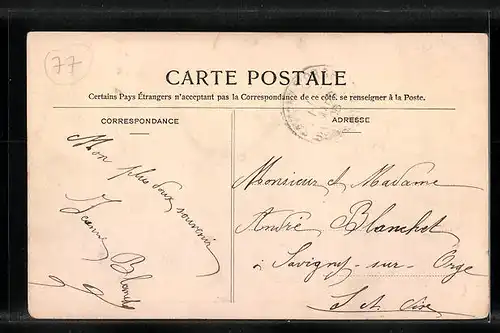 77
CARTE POSTALE
Certains Pays Étrangers n'acceptant pas la Correspondance de ce côté, se renseigner à la Poste.
CORRESPONDANCE
Mon plus doux souvenir
Jeanne Blanchet
ADRESSE
Monsieur et Madame
André Blanchet
à Savigny-sur-Orge
S et Oise